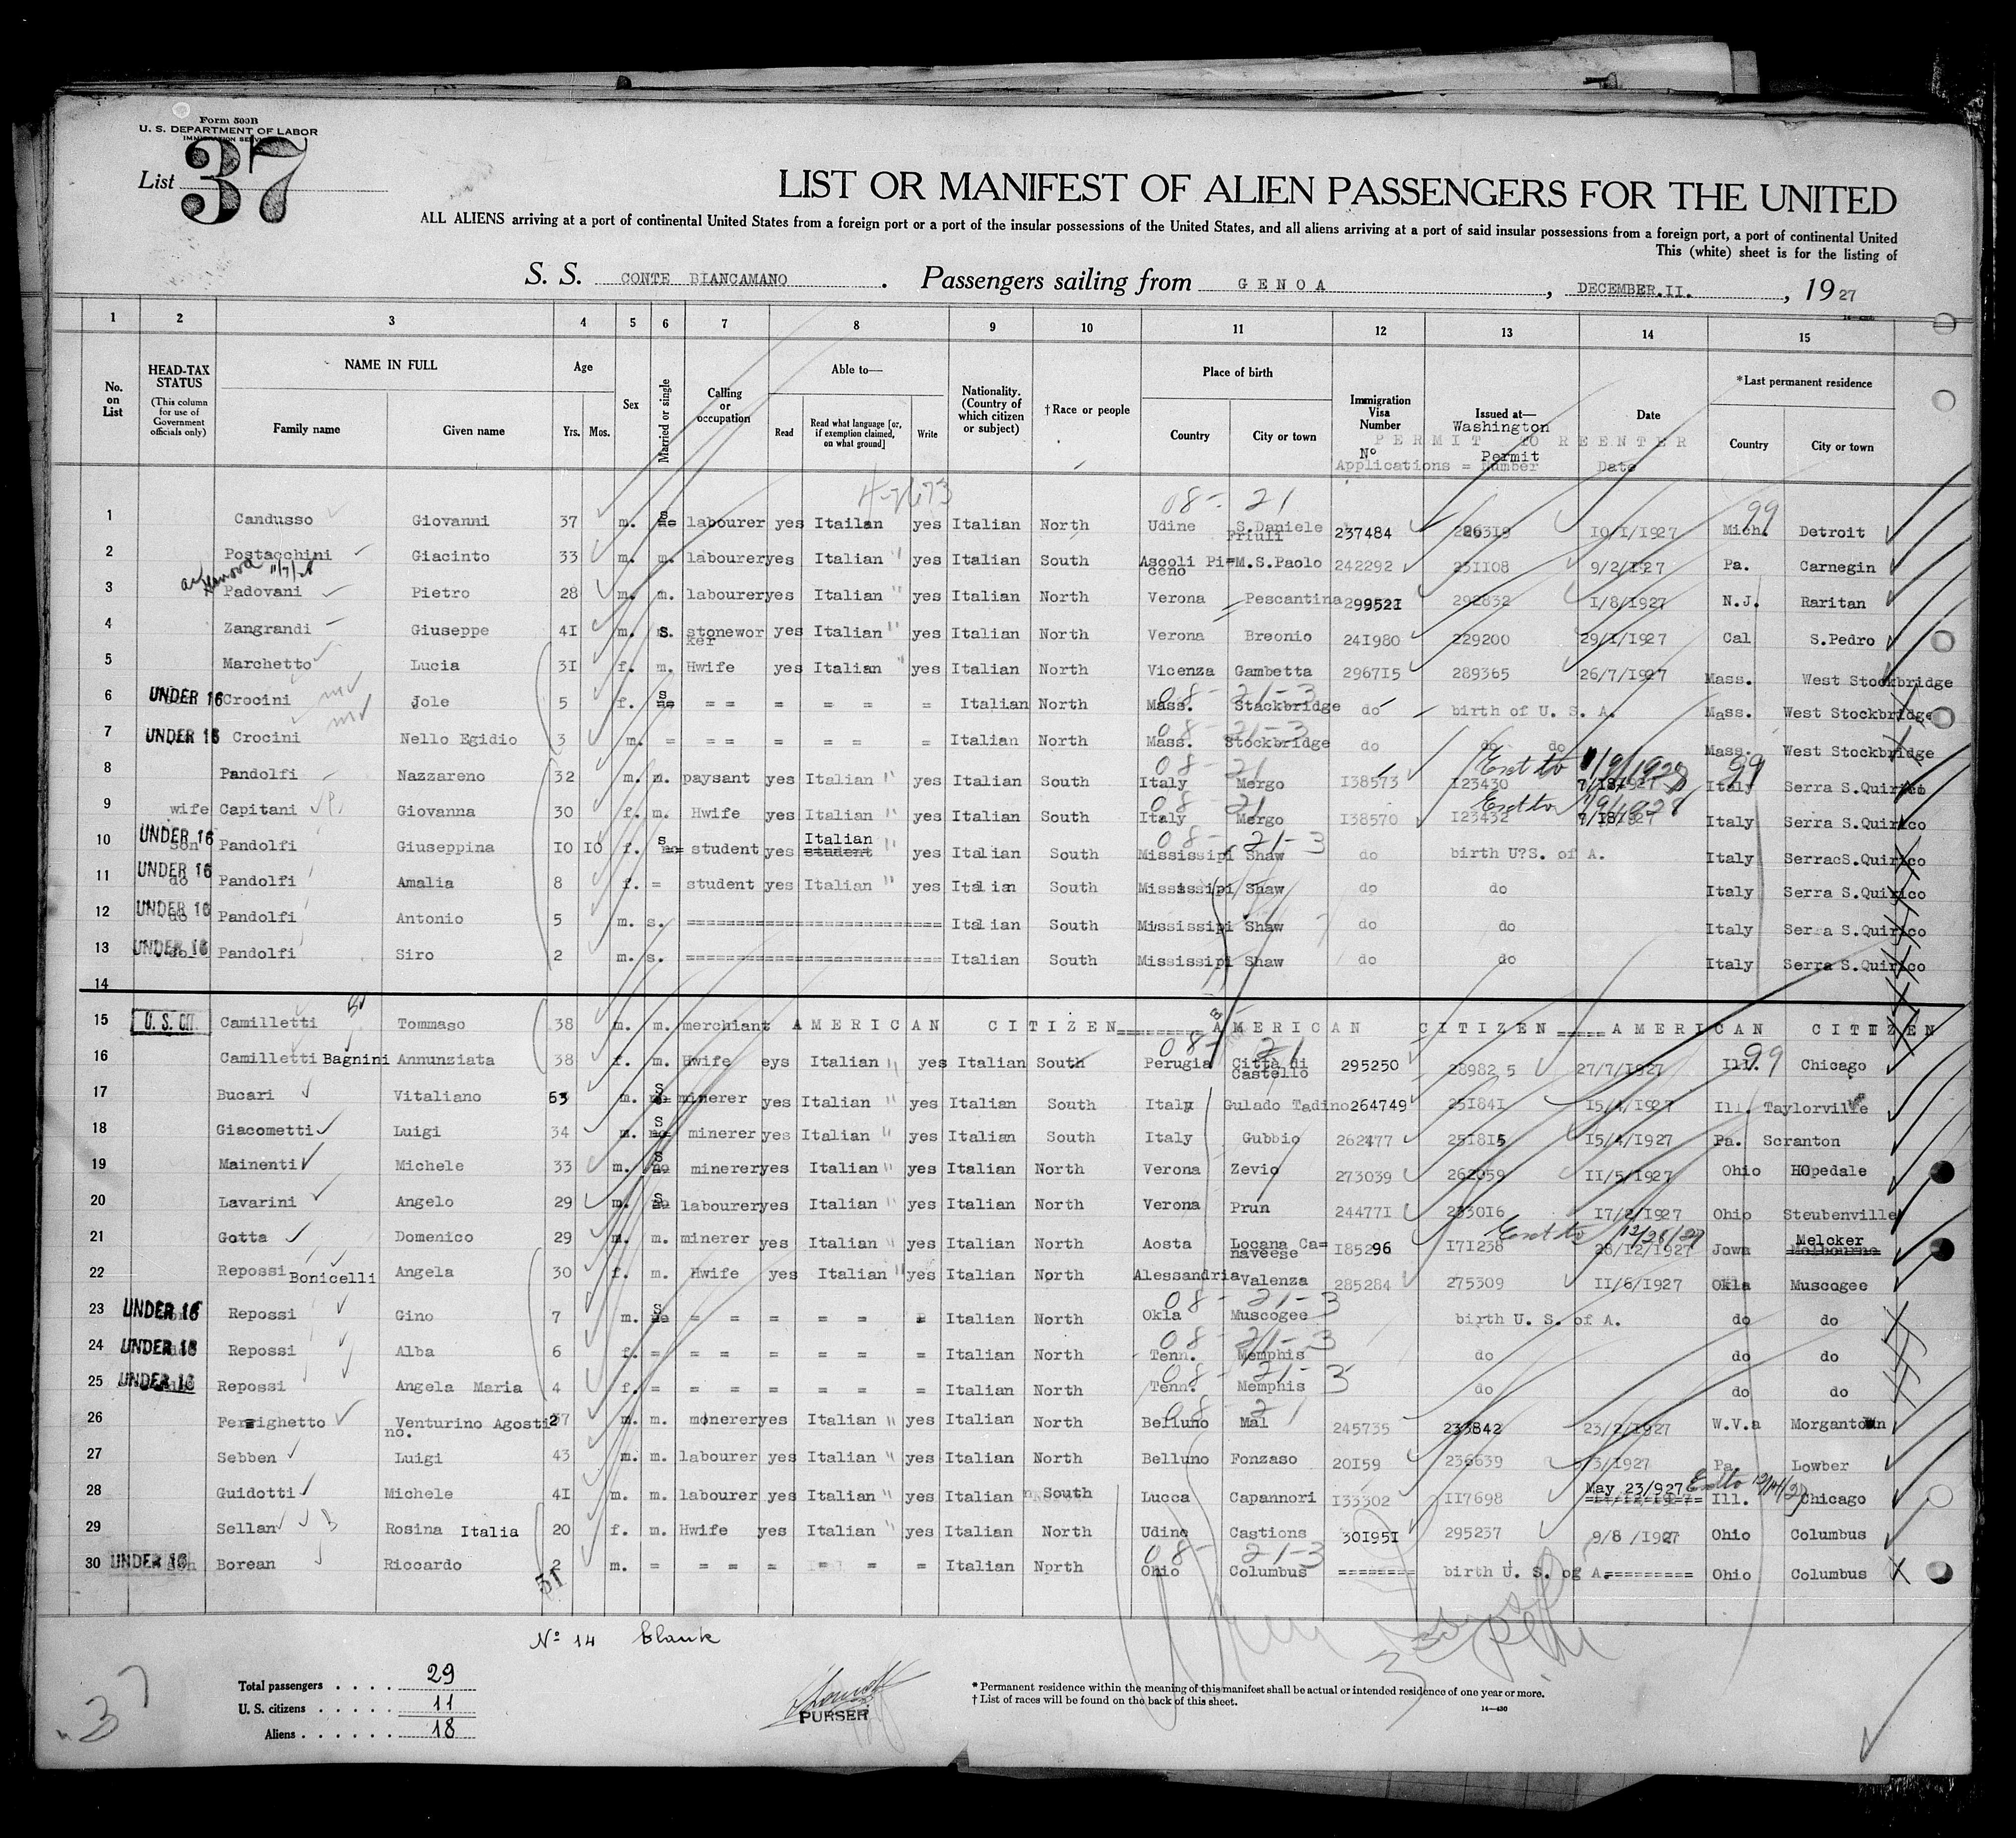 Form 500B
U. S. DEPARTMENT OF LABOR
IMMIGRATION SERVICE
List 37
LIST OR MANIFEST OF ALIEN PASSENGERS FOR THE UNITED
ALL ALIENS arriving at a port of continental United States from a foreign port or a port of the insular possessions of the United States, and all aliens arriving at a port of said insular possessions from a foreign port, a port of continental United
This (white) sheet is for the listing of
S. S. CONTE BIANCAMANO . Passengers sailing from GENOA , DECEMBER.II. , 1927
1 2 3 4 5 6 7 8 9 10 11 12 13 14 15
No. on List
HEAD-TAX STATUS
(This column for use of Government officials only)
NAME IN FULL
Family name
Given name
Age
Yrs. Mos.
Sex
Married or single
Calling or occupation
Able to—
Read
Read what language [or, if exemption claimed, on what ground]
Write
Nationality. (Country of which citizen or subject)
†Race or people
Place of birth
Country
City or town
Immigration Visa Number
Issued at—
Washington
Date
PERMIT TO REENTER
Nº Permit
Applications = Number Date
*Last permanent residence
Country
City or town
08- 21 99
1 Candusso Giovanni 37 m. s labourer yes Itailan yes Italian North Udine S.Daniele Friuli 237484 226319 10/1/1927 Mich. Detroit
2 Postacchini Giacinto 33 m. m. labourer yes Italian " yes Italian South Ascoli Pi=ceno M.S.Paolo 242292 231108 9/2/1927 Pa. Carnegin
11/7/28
3 Padovani Pietro 28 m. m. labourer yes Italian " yes Italian North Verona Pescantina 299521 292832 1/8/1927 N.J. Raritan
4 Zangrandi Giuseppe 41 m. s. stonewor ker yes Italian " yes Italian North Verona Breonio 241980 229200 29/1/1927 Cal S.Pedro
5 Marchetto Lucia 31 f. m. Hwife yes Italian " yes Italian North Vicenza Gambetta 296715 289365 26/7/1927 Mass. West Stockbridge
08- 21-3
6 UNDER 16 Crocini Jole 5 f. s == = = = = Italian North Mass. Stackbridge do birth of U. S. A. Mass. West Stockbridge
08- 21-3
7 UNDER 16 Crocini Nello Egidio 3 m. = == = = = = Italian North Mass. Stockbridge do do do Mass. West Stockbridge
08- 21 Ext to 99
8 Pandolfi Nazzareno 32 m. m. paysant yes Italian " yes Italian South Italy Mergo 138573 123430 7/18/1927 Italy Serra S.Quirico
08- 21 Ext to 1/9/1928
9 wife Capitani Giovanna 30 f. m. Hwife yes Italian " yes Italian South Italy Mergo 138570 123432 7/18/1927 Italy Serra S.Quirico
08- 21-3
10 UNDER 16 son Pandolfi Giuseppina 10 10 f. s student yes Italian student " yes Italian South Mississipi Shaw do birth U?S. of A. Italy SerracS.Quirico
11 UNDER 16 do Pandolfi Amalia 8 f. = student yes Italian " yes Italian South Mississipi Shaw do do Italy Serra S.Quirico
12 UNDER 16 do Pandolfi Antonio 5 m. s. ========================= Italian South Mississipi Shaw do do Italy Serra S.Quirico
13 UNDER 16 do Pandolfi Siro 2 m. s. ========================= Italian South Mississipi Shaw do do Italy Serra S.Quirico
14
15 U. S. CIT. Camilletti Tommaso 38 m. m. merchiant AMERICAN CITIZEN======== AMERICAN CITIZEN ===== AMERICAN CITIZEN
08- 21 99
16 Camilletti Bagnini Annunziata 38 f. m. Hwife eys Italian " yes Italian South Perugia Citta di Castello 295250 28982 5 27/7/1927 Ill. Chicago
17 Bucari Vitaliano 53 m. s minerer yes Italian " yes Italian South Italy Gulado Tadino 264749 251841 15/4/1927 Ill. Taylorville
18 Giacometti Luigi 34 m. s minerer yes Italian " yes Italian South Italy Gubbio 262477 251815 15/4/1927 Pa. Scranton
19 Mainenti Michele 33 m. s minerer yes Italian " yes Italian North Verona Zevio 273039 262059 11/5/1927 Ohio HOpedale
20 Lavarini Angelo 29 m. s labourer yes Italian " yes Italian North Verona Prun 244771 233016 17/2/1927 Ohio Steubenville
Ext to 12/28/29
21 Gotta Domenico 29 m. m. minerer yes Italian " yes Italian North Aosta Locana Ca=naveese 185296 171238 28/12/1927 Jowa Melcker Melbourne
22 Repossi Bonicelli Angela 30 f. m. Hwife yes Italian " yes Italian North Alessandria Valenza 285284 275309 11/6/1927 Okla Muscogee
08- 21-3
23 UNDER 16 Repossi Gino 7 m. s = = = = = = Italian North Okla Muscogee birth U. S. of A. do do
08- 21-3
24 UNDER 16 Repossi Alba 6 f. = = = = = = = Italian North Tenn. Memphis do do do
08- 21-3
25 UNDER 16 Repossi Angela Maria 4 f. = = = = = = = Italian North Tenn. Memphis do do do
08- 21
26 Ferrighetto Venturino Agosti no. 27 m. m. monerer yes Italian " yes Italian North Belluno Mal 245735 233842 23/2/1927 W.V.a Morgantown
27 Sebben Luigi 43 m. m. labourer yes Italian " yes Italian North Belluno Fonzaso 20159 236639 /3/1927 Pa. Lowber
28 Guidotti Michele 41 m. m. labourer yes Italian " yes Italian South Lucca Capannori 133302 117698 May 23/927 Ill. Chicago
29 Sellan Rosina Italia 20 f. m. Hwife yes Italian " yes Italian North Udine Castions 301951 295237 9/8 /1927 Ohio Columbus
08- 21-3
30 UNDER 16 son Borean Riccardo 2 m. = = = = = = = Italian North Ohio Columbus ======== birth U. S. og A.========= Ohio Columbus
Nº 14 blank
Total passengers . . . . 29
U. S. citizens . . . . . 11
Aliens . . . . . . 18
PURSER
* Permanent residence within the meaning of this manifest shall be actual or intended residence of one year or more.
† List of races will be found on the back of this sheet.
14—430